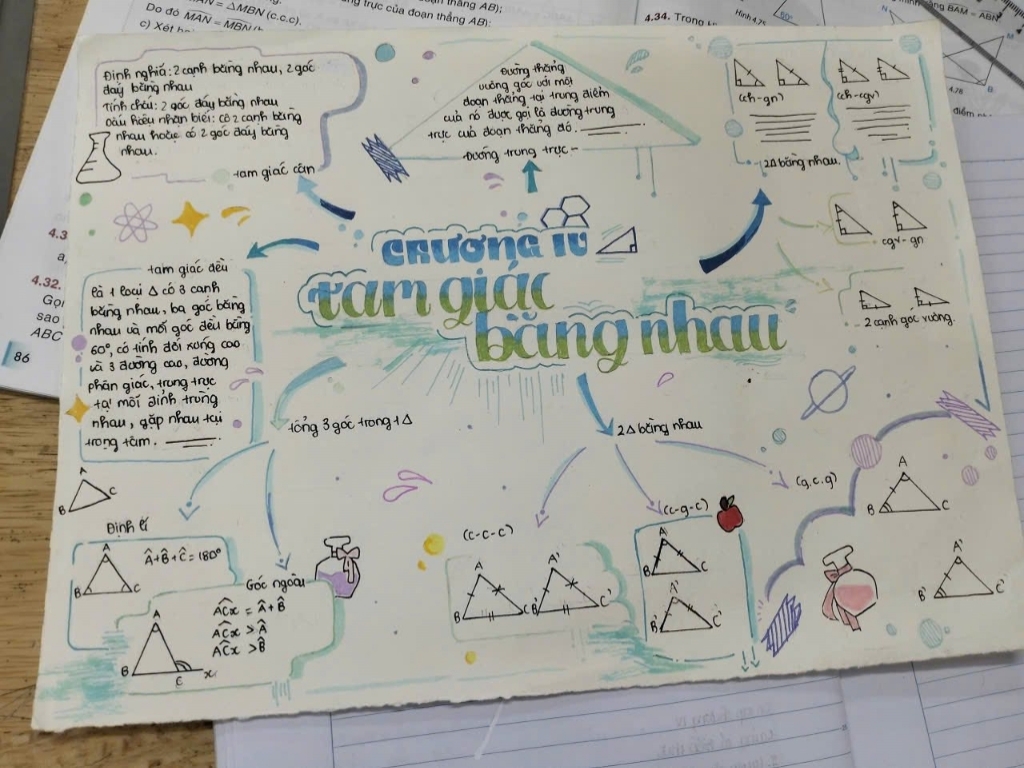 Do đó MAN = ΔMBN (c.c.c).
trực của đoạn thẳng AB);
4.34. Trong
Hình 4.75
BAM = ABN
4.32.
Gọi
sao
ABC
86
Định nghĩa: 2 cạnh bằng nhau, 2 góc
đáy bằng nhau
Tính chất: 2 góc đáy bằng nhau
Dấu hiệu nhận biết: có 2 cạnh bằng
nhau hoặc có 2 góc đáy bằng
nhau.
tam giác cân
Đường thẳng
vuông góc với một
đoạn thẳng tại trung điểm
của nó được gọi là đường trung
trực của đoạn thẳng đó.
Đường trung trực
(ch-gn)
(ch-cgv)
2Δ bằng nhau.
cgv-gn
2 cạnh góc vuông.
CHƯƠNG IV
tam giác
bằng nhau
tam giác đều
là 1 loại Δ có 3 cạnh
bằng nhau, ba góc bằng
nhau và mỗi góc đều bằng
60°, có tính đối xứng cao
và 3 đường cao, đường
phân giác, trung trực
tại mỗi đỉnh trùng
nhau, gặp nhau tại
trọng tâm.
tổng 3 góc trong 1 Δ
2Δ bằng nhau
A
C
B
Định lí
A
B
C
Â+B̂+Ĉ=180°
Góc ngoài
ACx = Â+B̂
ACx > Â
ACx > B̂
A
B
C
x
(c-c-c)
A
B
C
A'
B'
C'
(c-g-c)
A
B
C
A'
B'
C'
(g.c.g)
A
B
C
A'
B'
C'